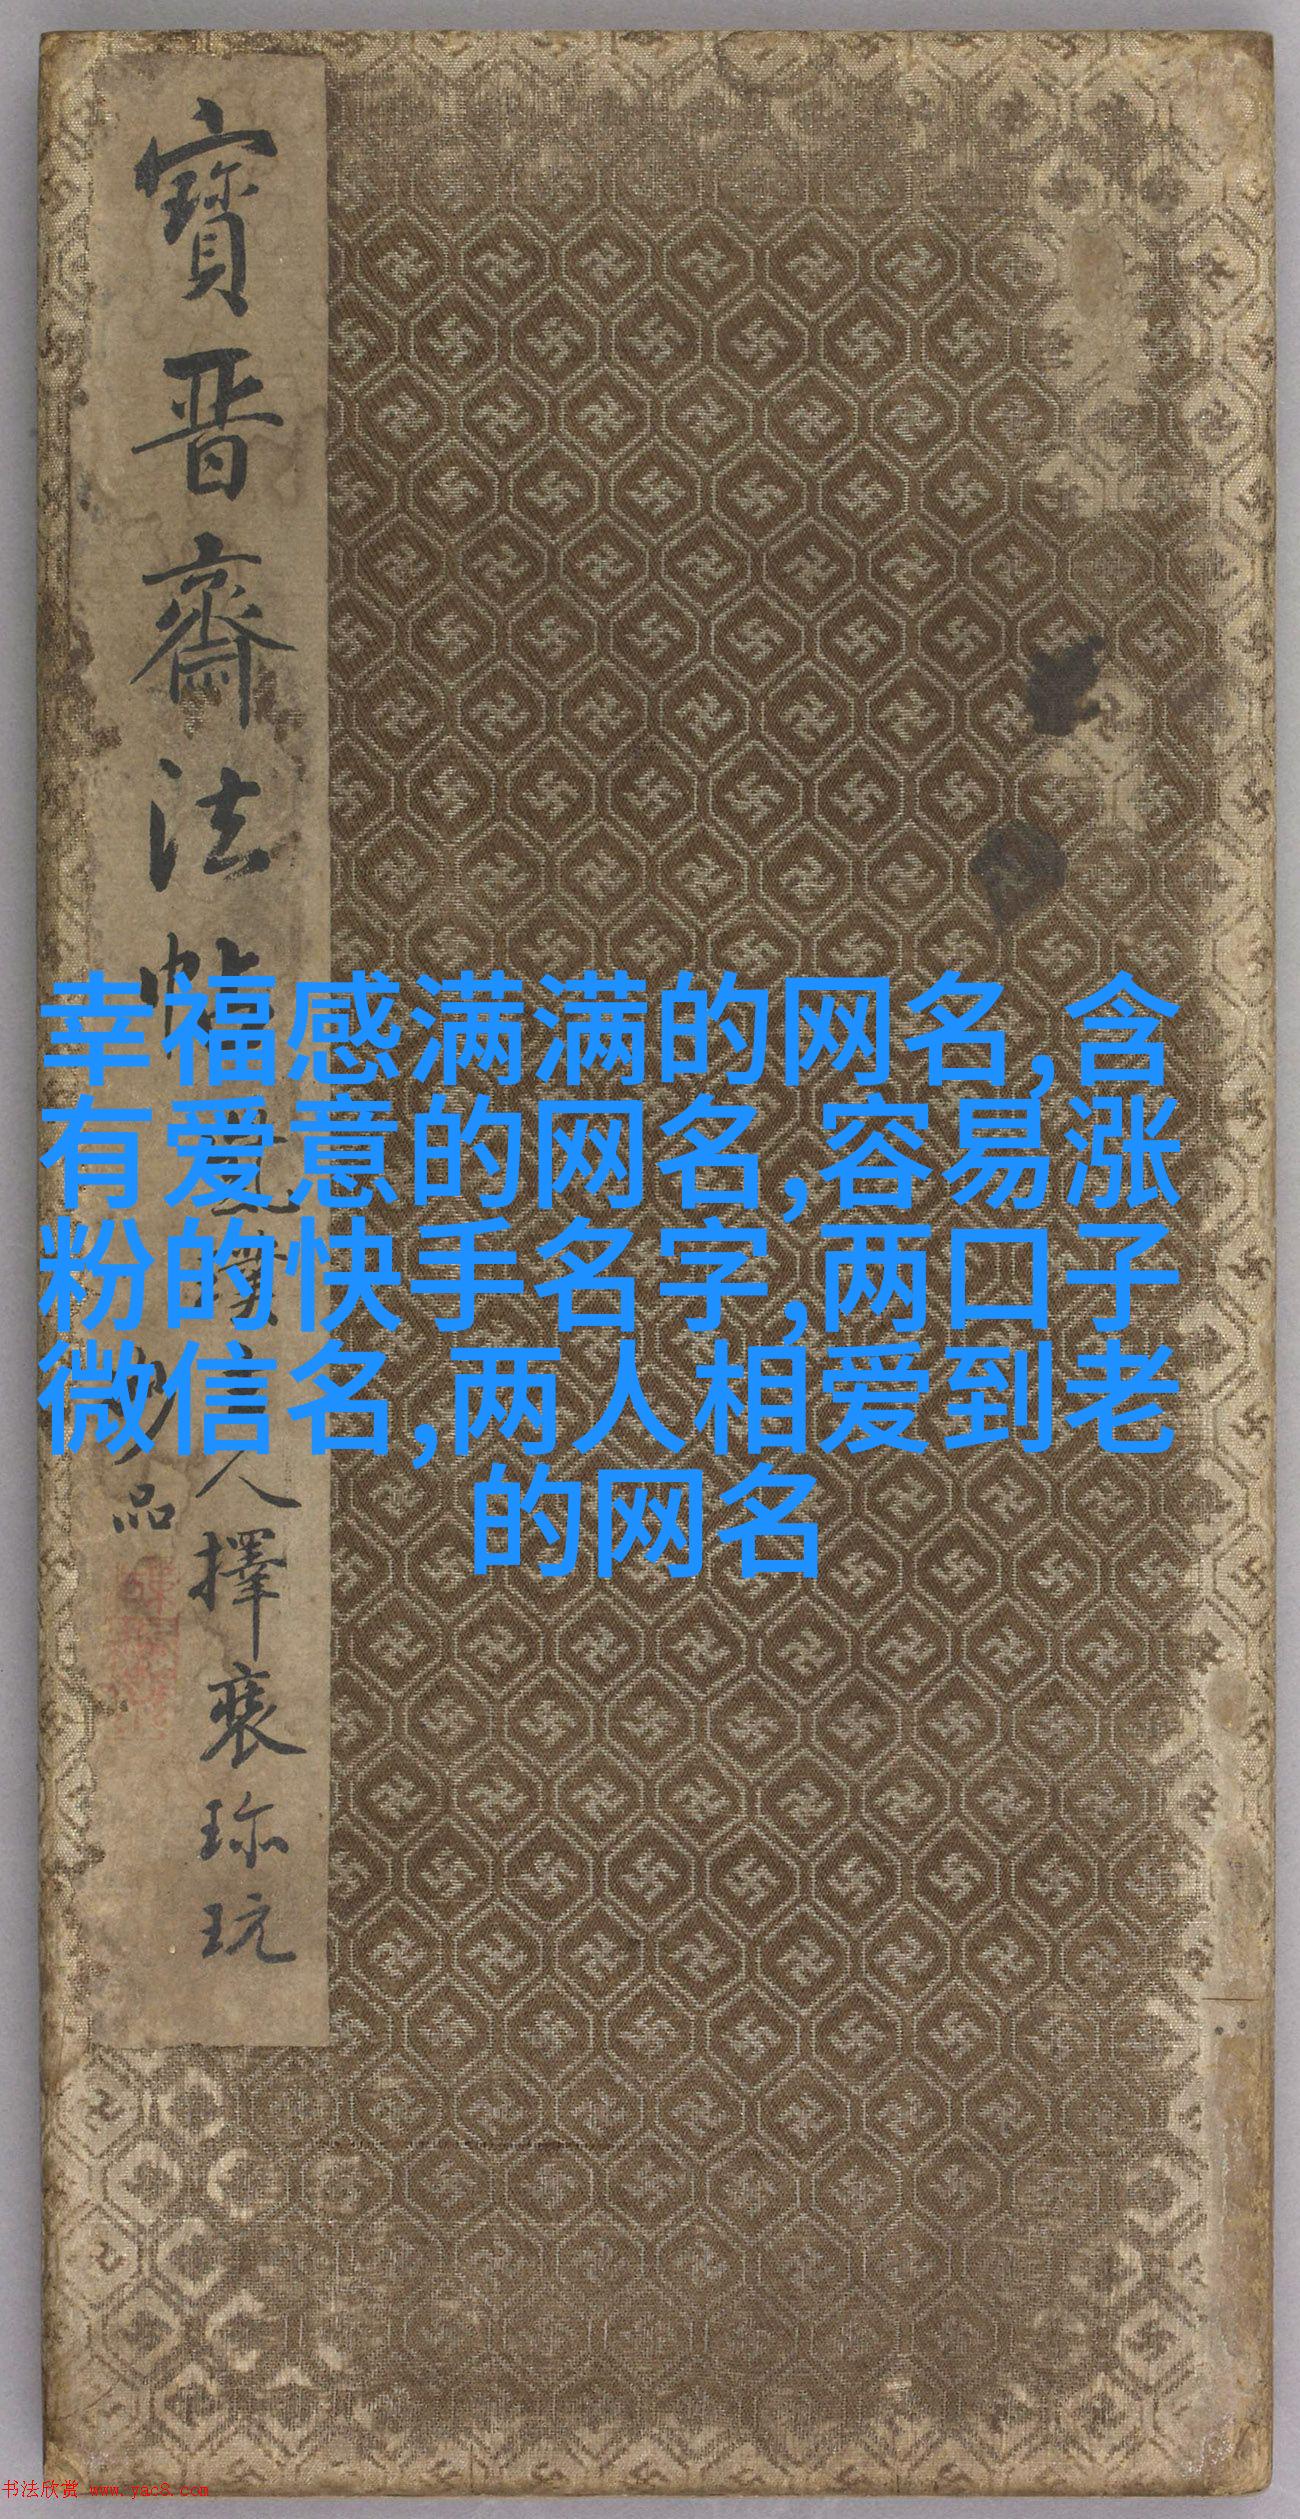 寳晋齋法帖
人擇裵珎玩
品
幸福感满满的网名,含
有爱意的网名,容易涨
粉的快手名字,两口子
微信名,两人相爱到老
的网名
书法欣赏 www.yac8.com